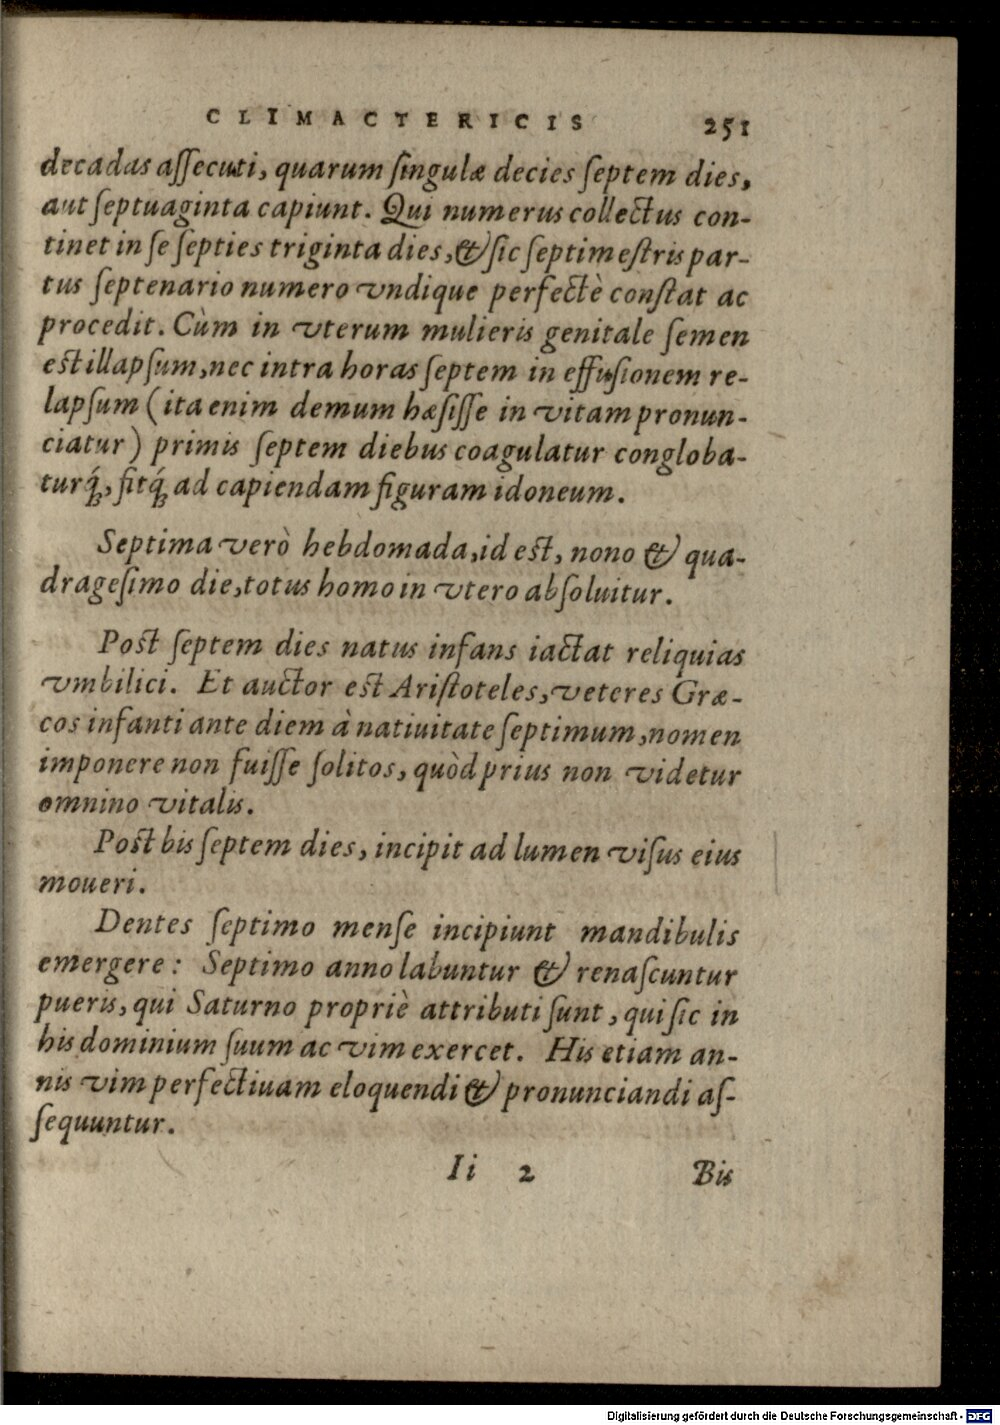 CLIMACTERICIS 251
decadas aſſecuti, quarum ſingulæ decies ſeptem dies,
aut ſeptuaginta capiunt. Qui numerus collectus con-
tinet in ſe ſepties triginta dies, & ſic ſeptimeſtris par-
tus ſeptenario numero vndique perfectè conſtat ac
procedit. Cùm in vterum mulieris genitale ſemen
eſt illapſum, nec intra horas ſeptem in effuſionem re-
lapſum (ita enim demum hæſiſſe in vitam pronun-
ciatur) primis ſeptem diebus coagulatur congloba-
turq́;, fitq́; ad capiendam figuram idoneum.
Septima verò hebdomada, id eſt, nono & qua-
drageſimo die, totus homo in vtero abſoluitur.
Poſt ſeptem dies natus infans iactat reliquias
vmbilici. Et auctor eſt Ariſtoteles, veteres Græ-
cos infanti ante diem à natiuitate ſeptimum, nomen
imponere non fuiſſe ſolitos, quòd prius non videtur
omnino vitalis.
Poſt bis ſeptem dies, incipit ad lumen viſus eius
moueri.
Dentes ſeptimo menſe incipiunt mandibulis
emergere: Septimo anno labuntur & renaſcuntur
pueris, qui Saturno propriè attributi ſunt, qui ſic in
his dominium ſuum ac vim exercet. His etiam an-
nis vim perfectiuam eloquendi & pronunciandi aſ-
ſequuntur.
Ii 2 Bis
Digitalisierung gefördert durch die Deutsche Forschungsgemeinschaft - DFG